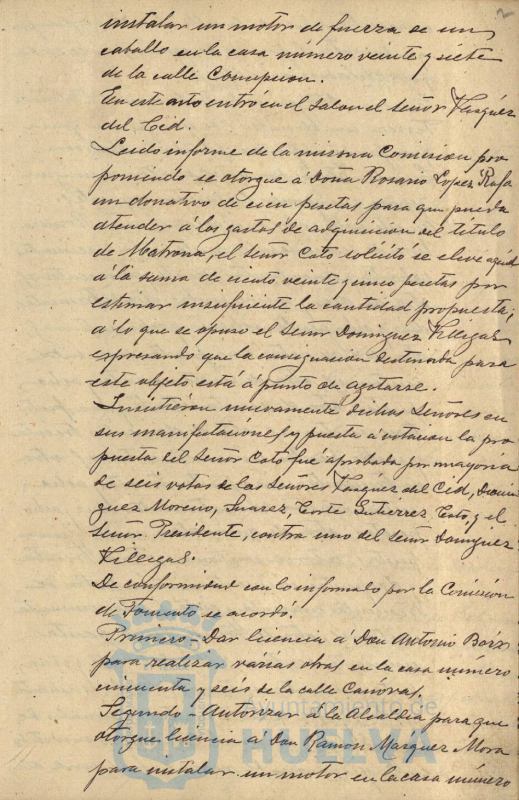 2
instalar un motor de fuerza de un
caballo en la casa número veinte y siete
de la calle Concepcion.
En este acto entró en el salon el señor Vazquéz
del Cid.
Leido informe de la misma Comision pro
poniendo se otorgue á Doña Rosario Lopez Rafa
un donativo de cien pesetas para que pueda
atender á los gastos de adquisicion del titulo
de Matrona, el señor Coto solicitó se eleve aquel
á la suma de ciento veinte y cinco pesetas por
estimar insuficiente la cantidad propuesta;
á lo que se opuso el Señor Dominguez Villegas
expresando que la consignacion destinada para
este objeto está á punto de agotarse.
Insistieron nuevamente dichos Señores en
sus manifestaciones y puesta á votacion la pro
puesta del Señor Coto fué aprobada por mayoria
de seis votos de los Señores Vazquéz del Cid, Domin
guez Moreno, Suarez, Corte Gutierrez Coto, y el
Señor Presidente, contra uno del Señor Dominguez
Villegas.
De conformidad con lo informado por la Comision
de Fomento se acordó.
Primero - Dar licencia á Don Antonio
para realizar várias obras en la casa número
cincuenta y seis de la calle Cánovas.
Segundo - Autorizar á la Alcaldia para que
otorgue licencia á Don Ramon Marquez Mora
para instalar un motor en la casa número
Ayuntamiento de
HUELVA